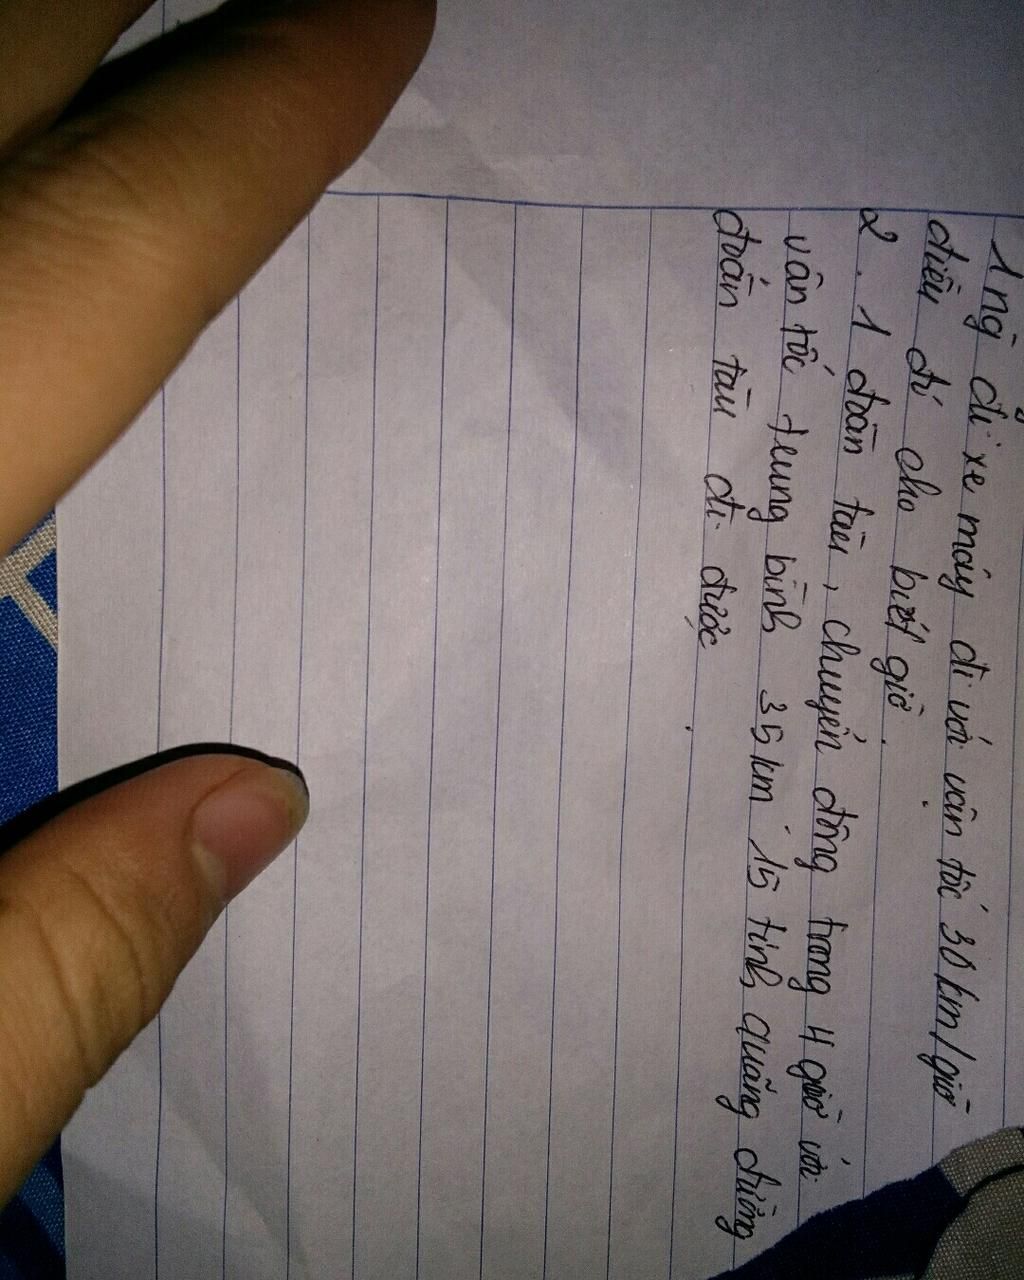 1 ng đi xe máy đi với vân tốc 30 km/giờ
điều đí cho biết giờ.
2. 1 đoàn tàu, chuyển đông trong 4 giờ với
vân tốc trung bình 35 km 15 tính quãng đường
đoàn tàu đi được